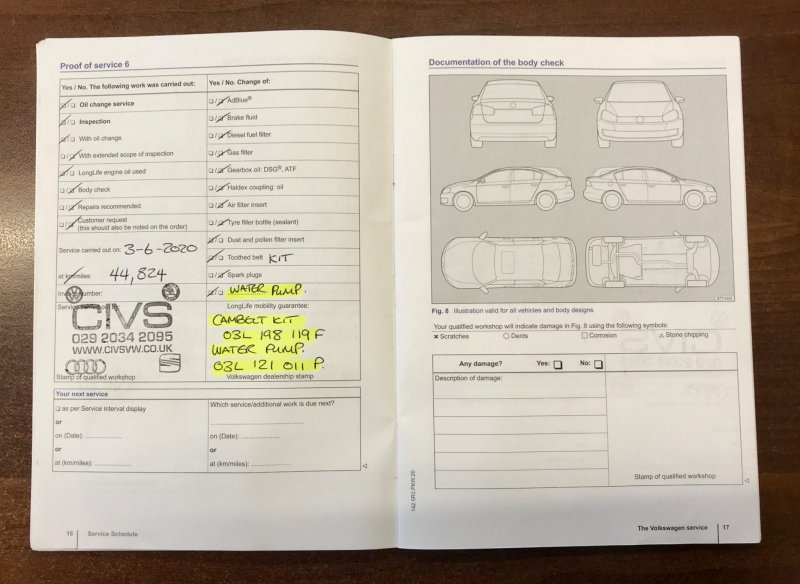 Proof of service 6
Yes / No. The following work was carried out:
☑/☐ Oil change service
☑/☐ Inspection
☑/☐ With oil change
☐/☑ With extended scope of inspection
☑/☐ LongLife engine oil used
☐/☑ Body check
☐/☑ Repairs recommended
☐/☑ Customer request
(this should also be noted on the order)
Service carried out on: 3-6-2020
at km/miles: 44,824
number:
CIVS
029 2034 2095
WWW.CIVSVW.CO.UK
Stamp of qualified workshop
Yes / No. Change of:
☐/☑ AdBlue®
☐/☑ Brake fluid
☐/☑ Diesel fuel filter
☐/☑ Gas filter
☐/☑ Gearbox oil: DSG®, ATF
☐/☑ Haldex coupling oil
☐/☑ Air filter insert
☐/☑ Tyre filler bottle (sealant)
☑/☐ Dust and pollen filter insert
☑/☐ Toothed belt KIT
☐/☑ Spark plugs
☑/☐ WATER PUMP.
LongLife mobility guarantee:
CAMBELT KIT
03L 198 119 F
WATER PUMP.
03L 121 011 P.
Volkswagen dealership stamp
Your next service
☐ as per Service interval display
or
on (Date): ....................
or
at (km/miles): ....................
Which service/additional work is due next?
....................
on (Date): ....................
or
at (km/miles): ....................
16 Service Schedule
Documentation of the body check
Fig. 8 Illustration valid for all vehicles and body designs
Your qualified workshop will indicate damage in Fig. 8 using the following symbols:
✖ Scratches ○ Dents □ Corrosion △ Stone chipping
Any damage? Yes: ☐ No: ☐
Description of damage:
Stamp of qualified workshop
142.5R3.PKW.20
The Volkswagen service 17